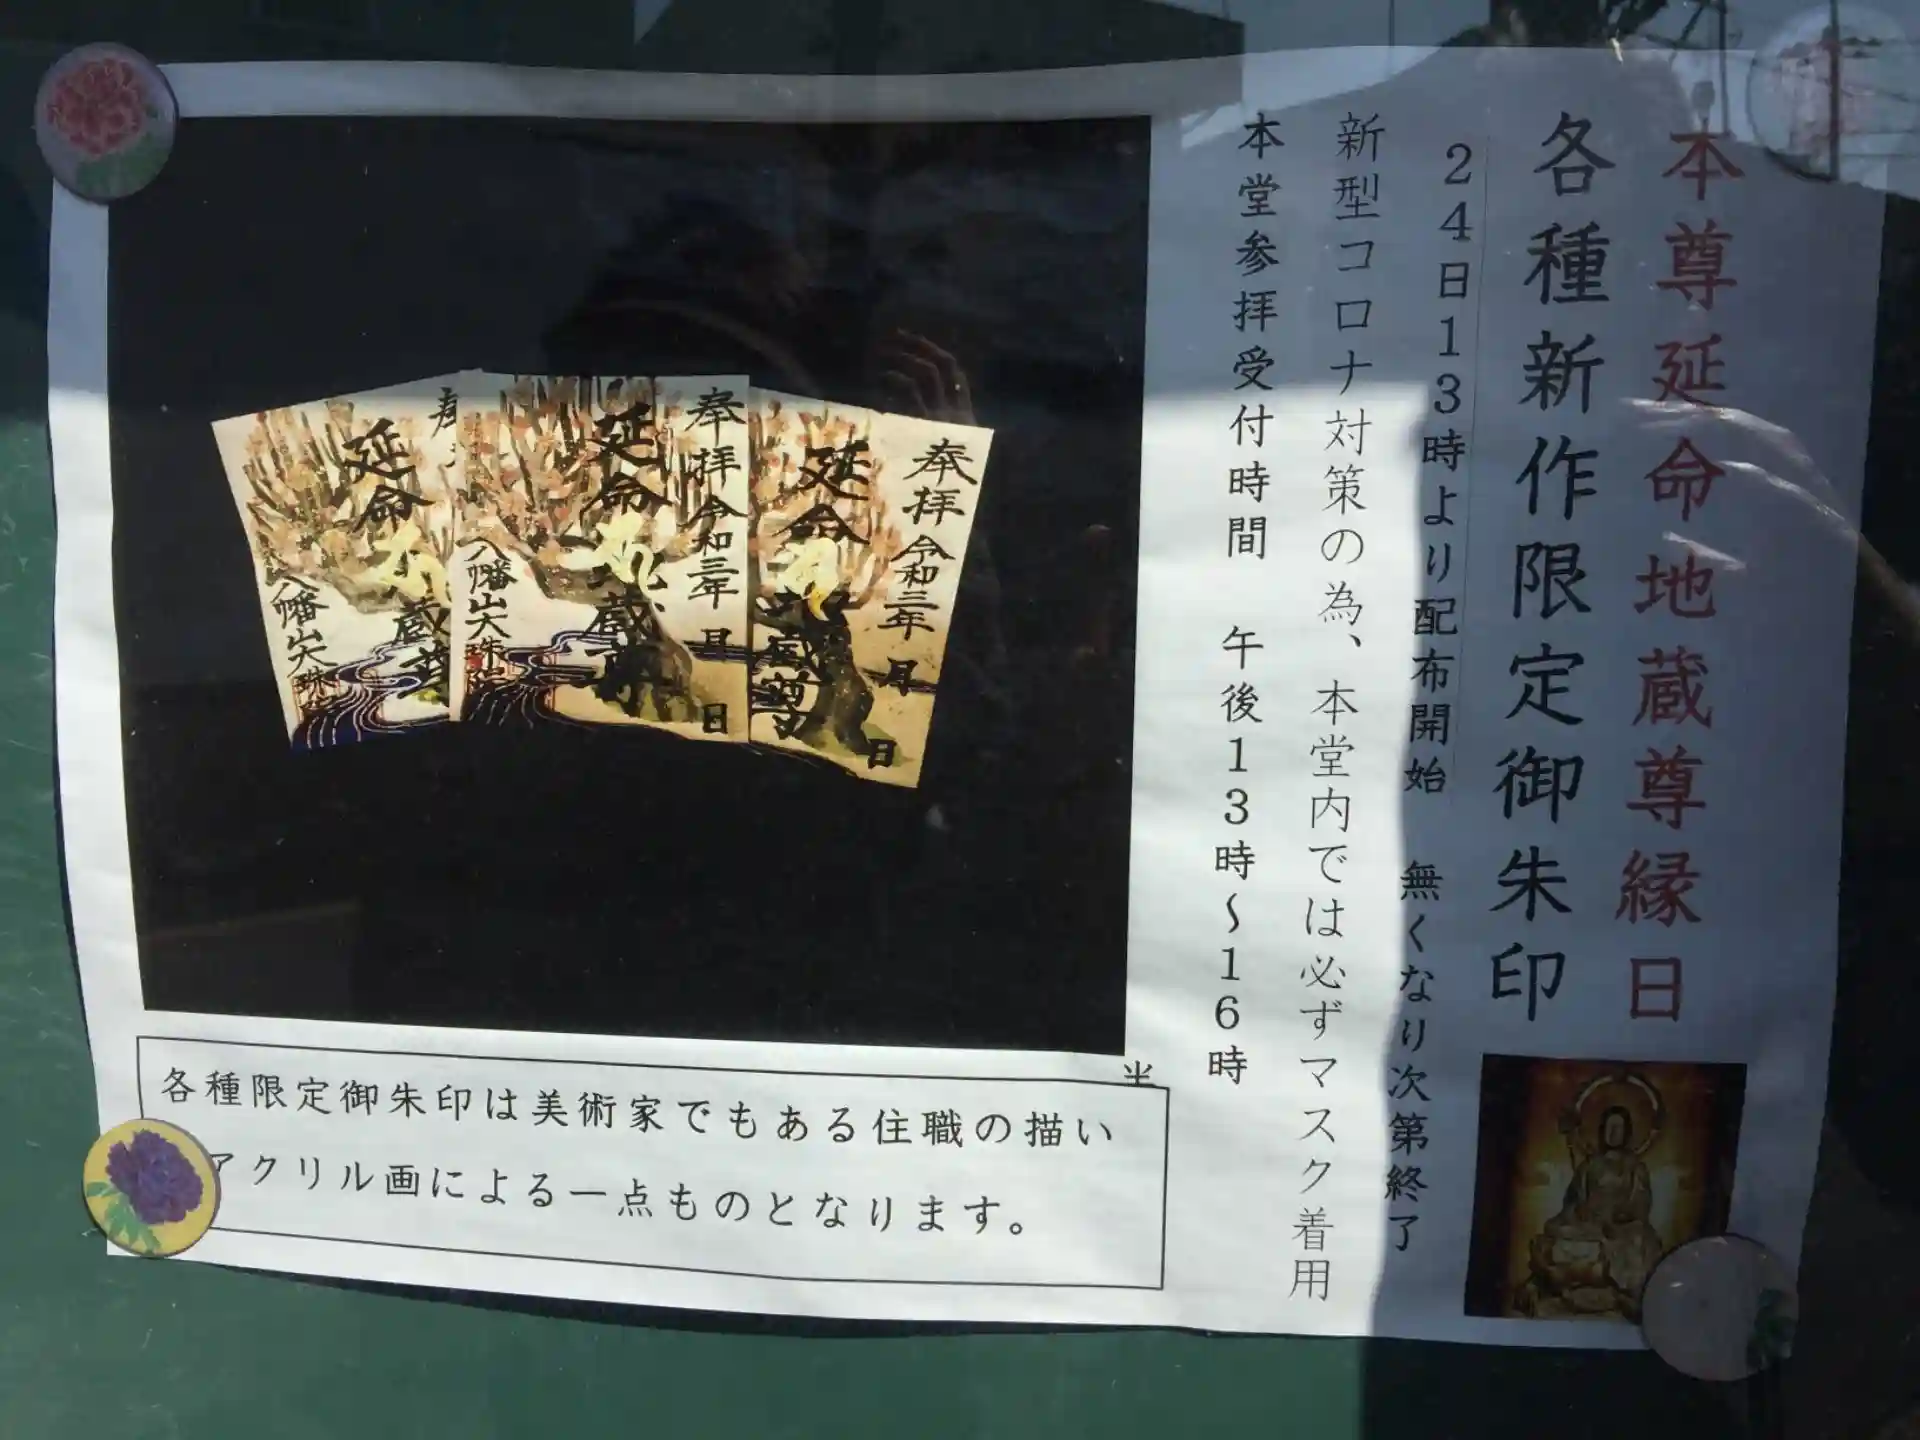 本尊延命地蔵尊縁日
各種新作限定御朱印
24日13時より配布開始　無くなり次第終了
新型コロナ対策の為、本堂内では必ずマスク着用
本堂参拝受付時間　午後13時～16時
奉拝令和三年　月　日
延命地蔵尊
奉拝令和三年　月　日
延命地蔵尊
八幡山大珠院
延命地蔵尊
八幡山大珠院
各種限定御朱印は美術家でもある住職の描い
アクリル画による一点ものとなります。